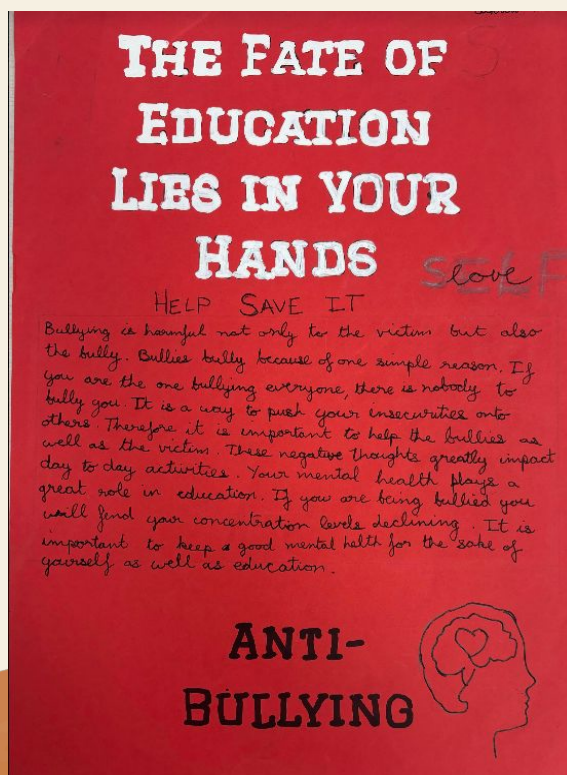 THE FATE OF
EDUCATION
LIES IN YOUR
HANDS
SELF
love
HELP SAVE IT
Bullying is harmful not only to the victim but also
the bully. Bullies bully because of one simple reason. If
you are the one bullying everyone, there is nobody to
bully you. It is a way to push your insecurities onto
others. Therefore it is important to help the bullies as
well as the victim. These negative thoughts greatly impact
day to day activities. Your mental health plays a
great role in education. If you are being bullied you
will find your concentration levels declining. It is
important to keep a good mental helth for the sake of
yourself as well as education.
ANTI-
BULLYING